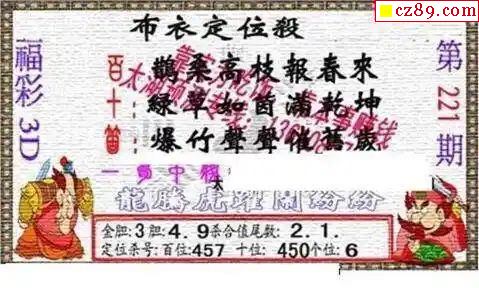 cz89.com
布衣定位殺
福彩3D
第221期
百:鵲桑高枝報春來
十:綠草如茵滿乾坤
個:爆竹聲聲催舊歲
龍騰虎躍鬧紛紛
金胆:3胆:4.9杀合值尾数:2.1.
定位杀号:百位:457 十位:450个位:6